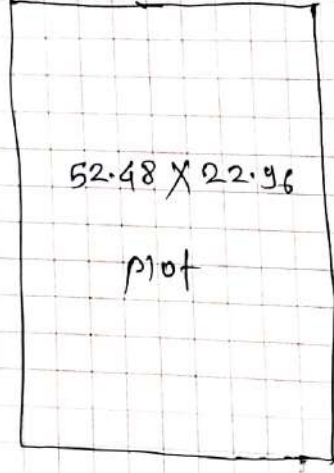 52.48 X 22.96
plot